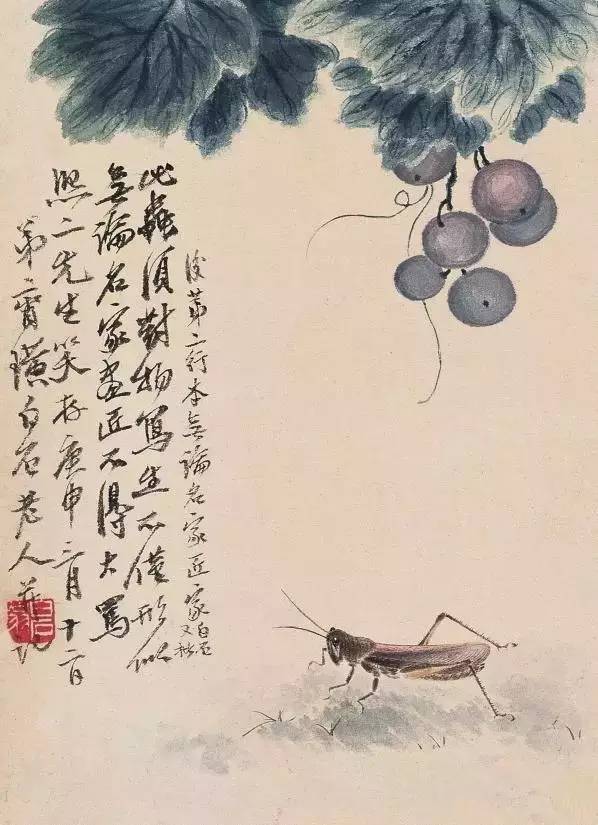 此蟲須對物寫生不僅形似
無論名家畫匠不得大罵
熙二先生笑存庚申三月十二日
第二宵璜白石老人并記
後第二行本無論名家匠家白石又
白石翁